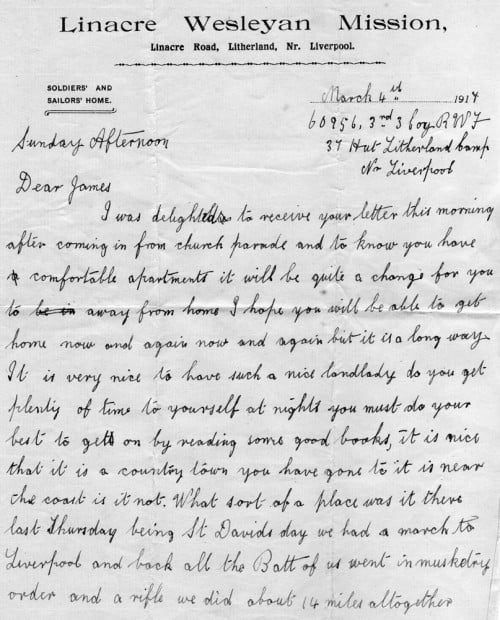 Linacre Wesleyan Mission,
Linacre Road, Litherland, Nr. Liverpool.
SOLDIERS' AND
SAILORS' HOME.
March 4th 1917
60956, 3rd 3 Coy. R W F
37 Hut Litherland Camp
Nr Liverpool
Sunday Afternoon
Dear James
I was delighted to receive your letter this morning
after coming in from church parade and to know you have
comfortable apartments it will be quite a change for you
to be in away from home I hope you will be able to get
home now and again now and again but it is a long way.
It is very nice to have such a nice landlady do you get
plenty of time to yourself at nights you must do your
best to get on by reading some good books, it is nice
that it is a country town you have gone to it is near
the coast is it not. What sort of a place was it there
last Thursday being St Davids day we had a march to
Liverpool and back all the Batt of us went in musketry
order and a rifle we did about 14 miles altogether